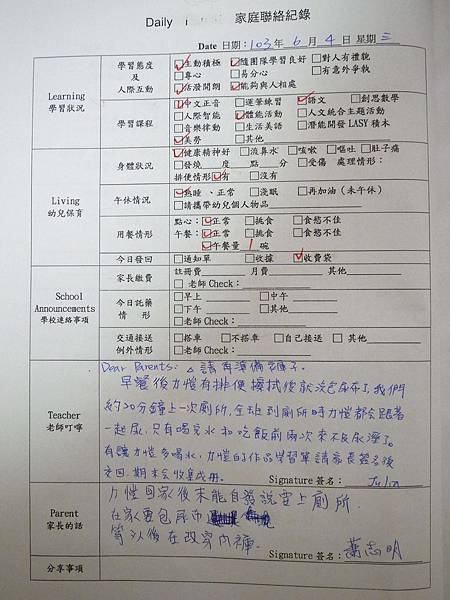 Daily 家庭聯絡紀錄
Date 日期：103年 6 月 4 日 星期 三
Learning 學習狀況
學習態度及人際互動
☑主動積極 ☑隨團隊學習良好 □對人有禮貌
□專心 □易分心 □有意外爭執
☑活潑開朗 ☑能夠與人相處
學習課程
☑中文正音 □運筆練習 ☑語文 □創思數學
□人際智能 ☑體能活動 □人文統合主題活動
□音樂律動 □生活美語 □潛能開發 LASY 積木
☑美勞 □其他
Living 幼兒保育
身體狀況
☑健康精神好 □流鼻水 □咳嗽 □嘔吐 □肚子痛
□發燒____度 點____分 □受傷 處理情形：
排便情形☑有 □沒有
午休情況
☑熟睡、正常 □淺眠 □再加油（未午休）
□請攜帶幼兒個人物品
用餐情形
點心：☑正常 □挑食 □食慾不佳
午餐：☑正常 □挑食 □食慾不佳
☑午餐量 1 碗
今日發回
□通知單 □收據 ☑收費袋
School Announcements 學校連絡事項
家長繳費
註冊費 月費 其他
□ 老師 Check：
今日託藥情形
□早上 □中午
□下午 □其他
□老師 Check：
交通接送例外情形
□搭車 □不搭車 □自己接送 □ 其他
□老師 Check：
Teacher 老師叮嚀
Dear Parents: △請再準備褲子。
早餐後力愷有排便擦拭後就沒包尿布了,我們
約30分鐘上一次廁所,全班到廁所時力愷都會跟著
一起尿,只有喝完水和吃飯前兩次來不及尿溼了。
有讓力愷多喝水,力愷的作品學習單請家長簽名後
交回,期末會收集成冊。
Signature 簽名： Julia
Parent 家長的話
力愷回家後未能自發說要上廁所.
在家要包尿布
等以後在改穿內褲.
Signature 簽名： 蕭志明
分享事項